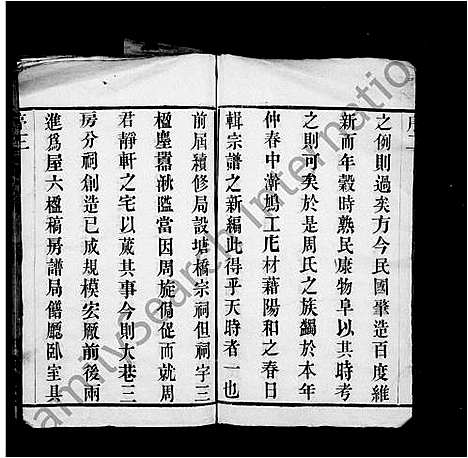 之例則過矣方今民國肇造百度維
新而年穀時熟民康物阜以其時考
之則可矣於是周氏之族蠲於本年
仲春中澣鳩工庀材藉陽和之春日
輯宗譜之新編此得乎天時者一也
前屆續修局設塘橋宗祠但祠字三
楹塵囂湫隘當因周旋偪促而就周
君靜軒之宅以蕆其事今則大巷三
房分祠創造已成規模宏厰前後兩
進爲屋六楹稿房譜局饍廳臥室具
familysearch international